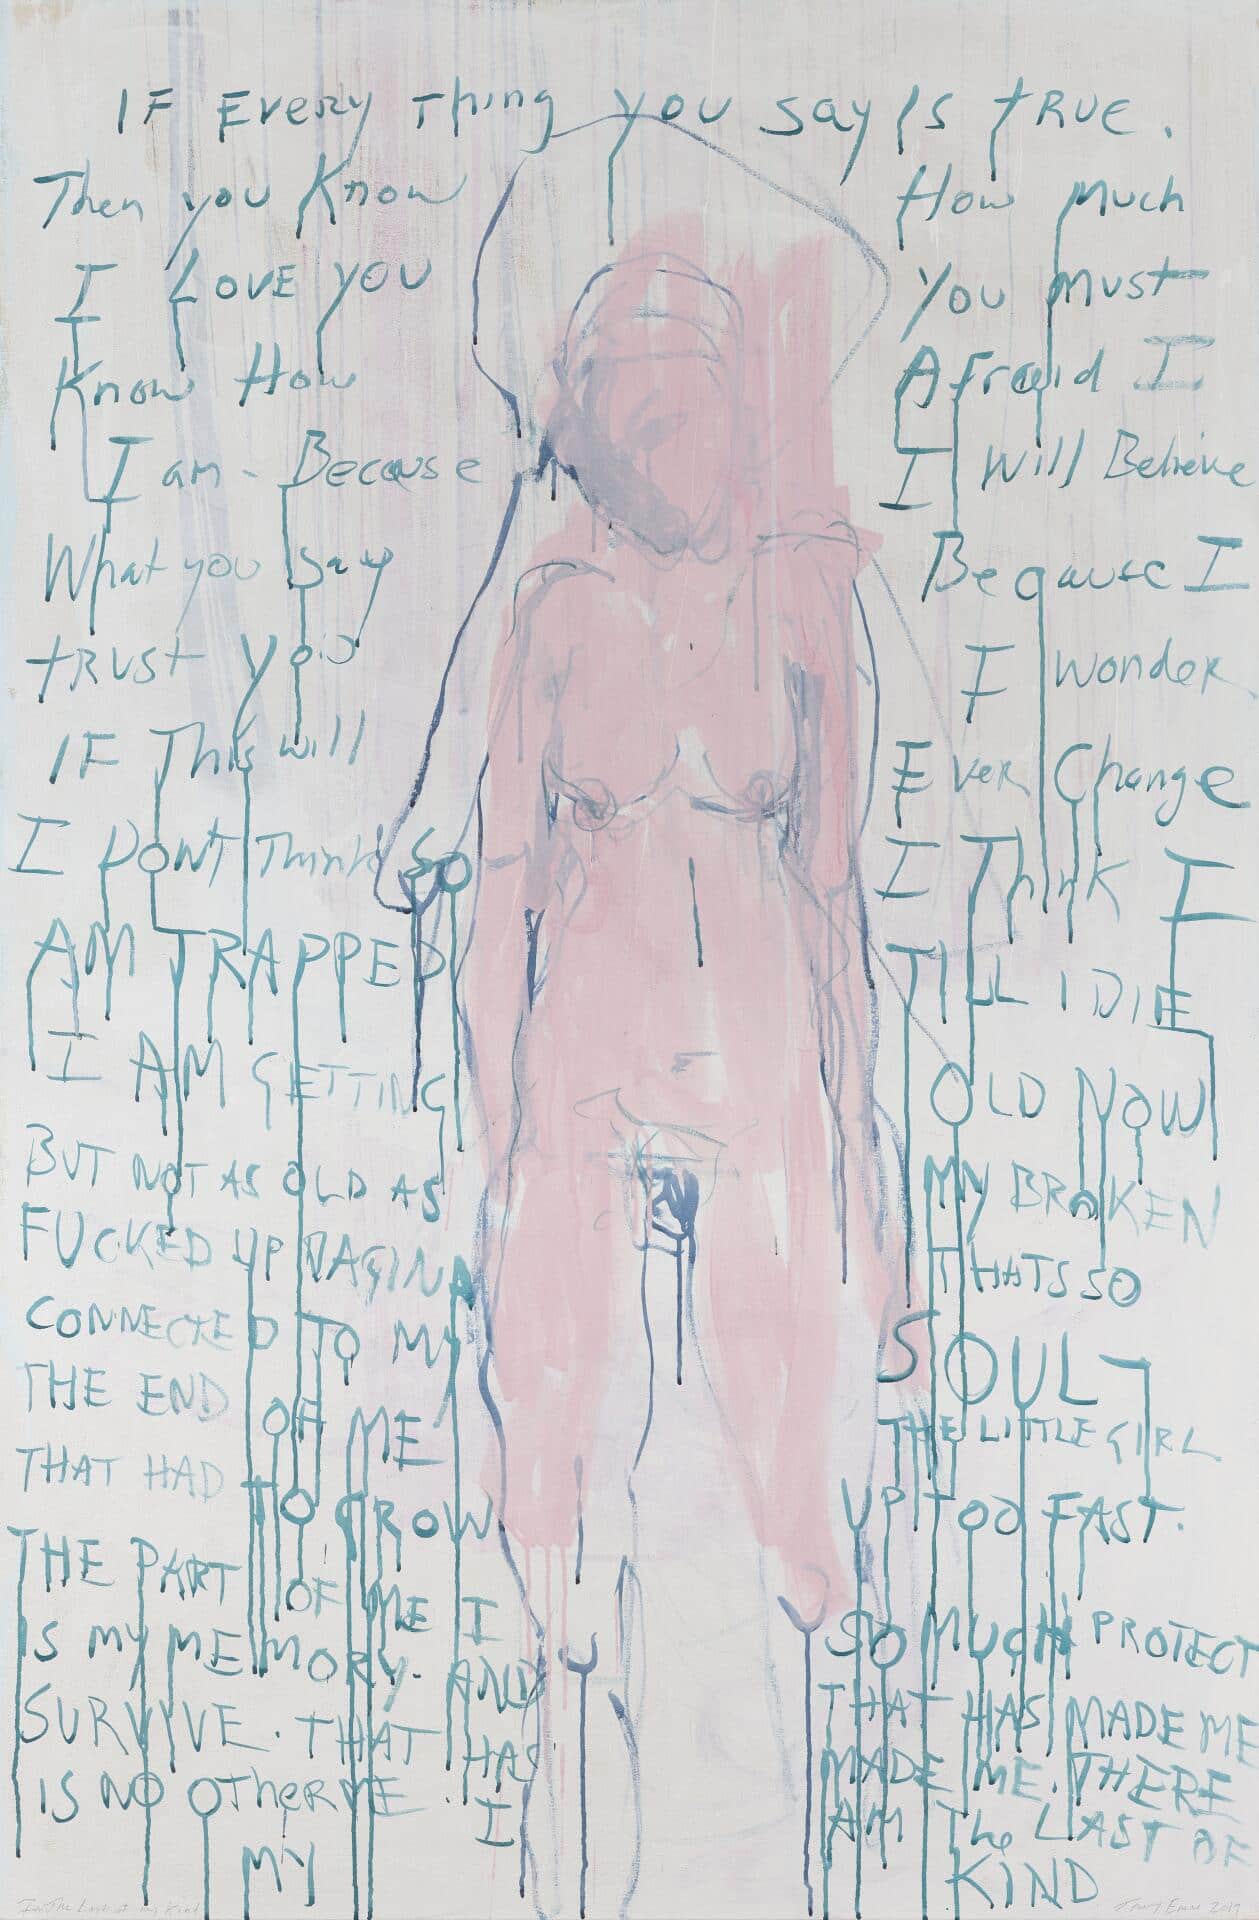 IF Every Thing you say Is tRUE.
Then you Know How Much
I LOVE YOU You Must
Know How Afraid I
I am - Because I Will Believe
What you say Because I
tRUST You I wonder
IF This will Ever Change
I DONT Think So I Think I
AM TRAPPED TILL I DIE
I AM GETTING OLD NOW
BUT NOT AS OLD AS MY BROKEN
FUCKED UP VAGINA THATS SO
CONNECTED TO MY SOUL -
THE END OF ME THE LITTLE GIRL
THAT HAD TO GROW UP TOO FAST.
THE PART OF ME I SO MUCH PROTECT
IS MY MEMORY. AND THAT HAS MADE ME
SURVIVE. THAT HAS MADE ME. THERE
IS NO OTHER ME. I AM The LAST OF
MY KIND
I'm The Last of my Kind Tracey Emin 2019